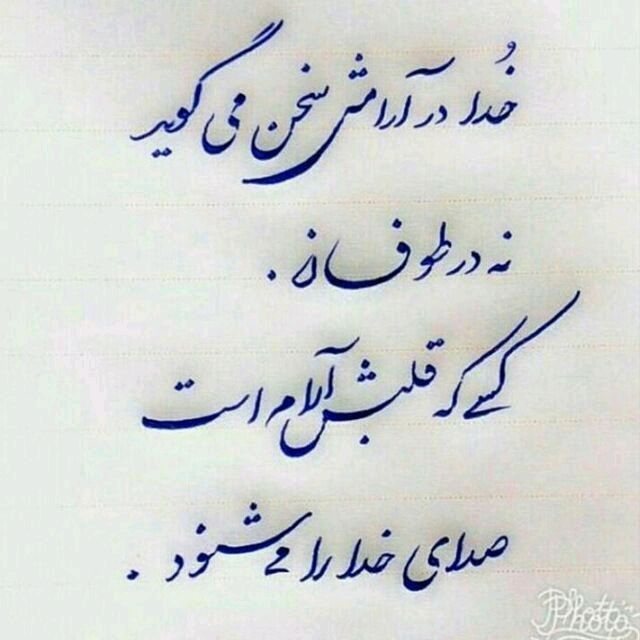 خُدا در آرامش سخن می گوید
نه در طوفان .
کسی که قلبش آرام است
صدای خدا را می شنود .
Photo